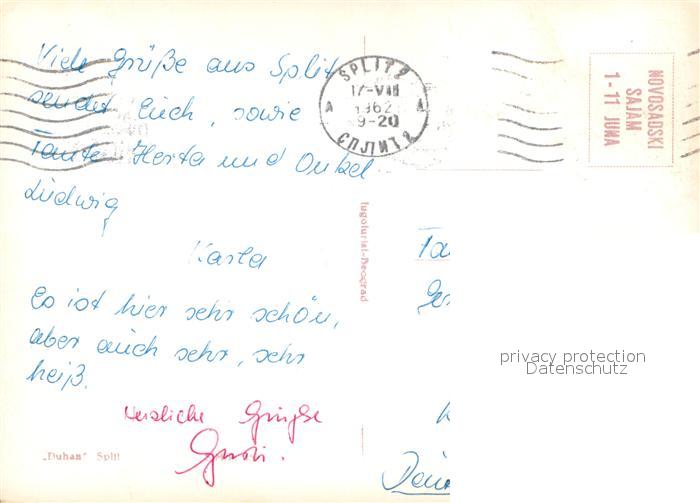 Viele Grüße aus Split
sendet Euch, sowie
Tante Herta und Onkel
Ludwig
Karla
Es ist hier sehr schön,
aber auch sehr, sehr
heiß.
Herzliche Grüße
„Duhan“ Split
SPLIT 2
17-VIII
1962
9-20
A A
СПЛИТ 2
NOVOSADSKI
SAJAM
1-11 JUNA
Jugoturist-Beograd
privacy protection
Datenschutz